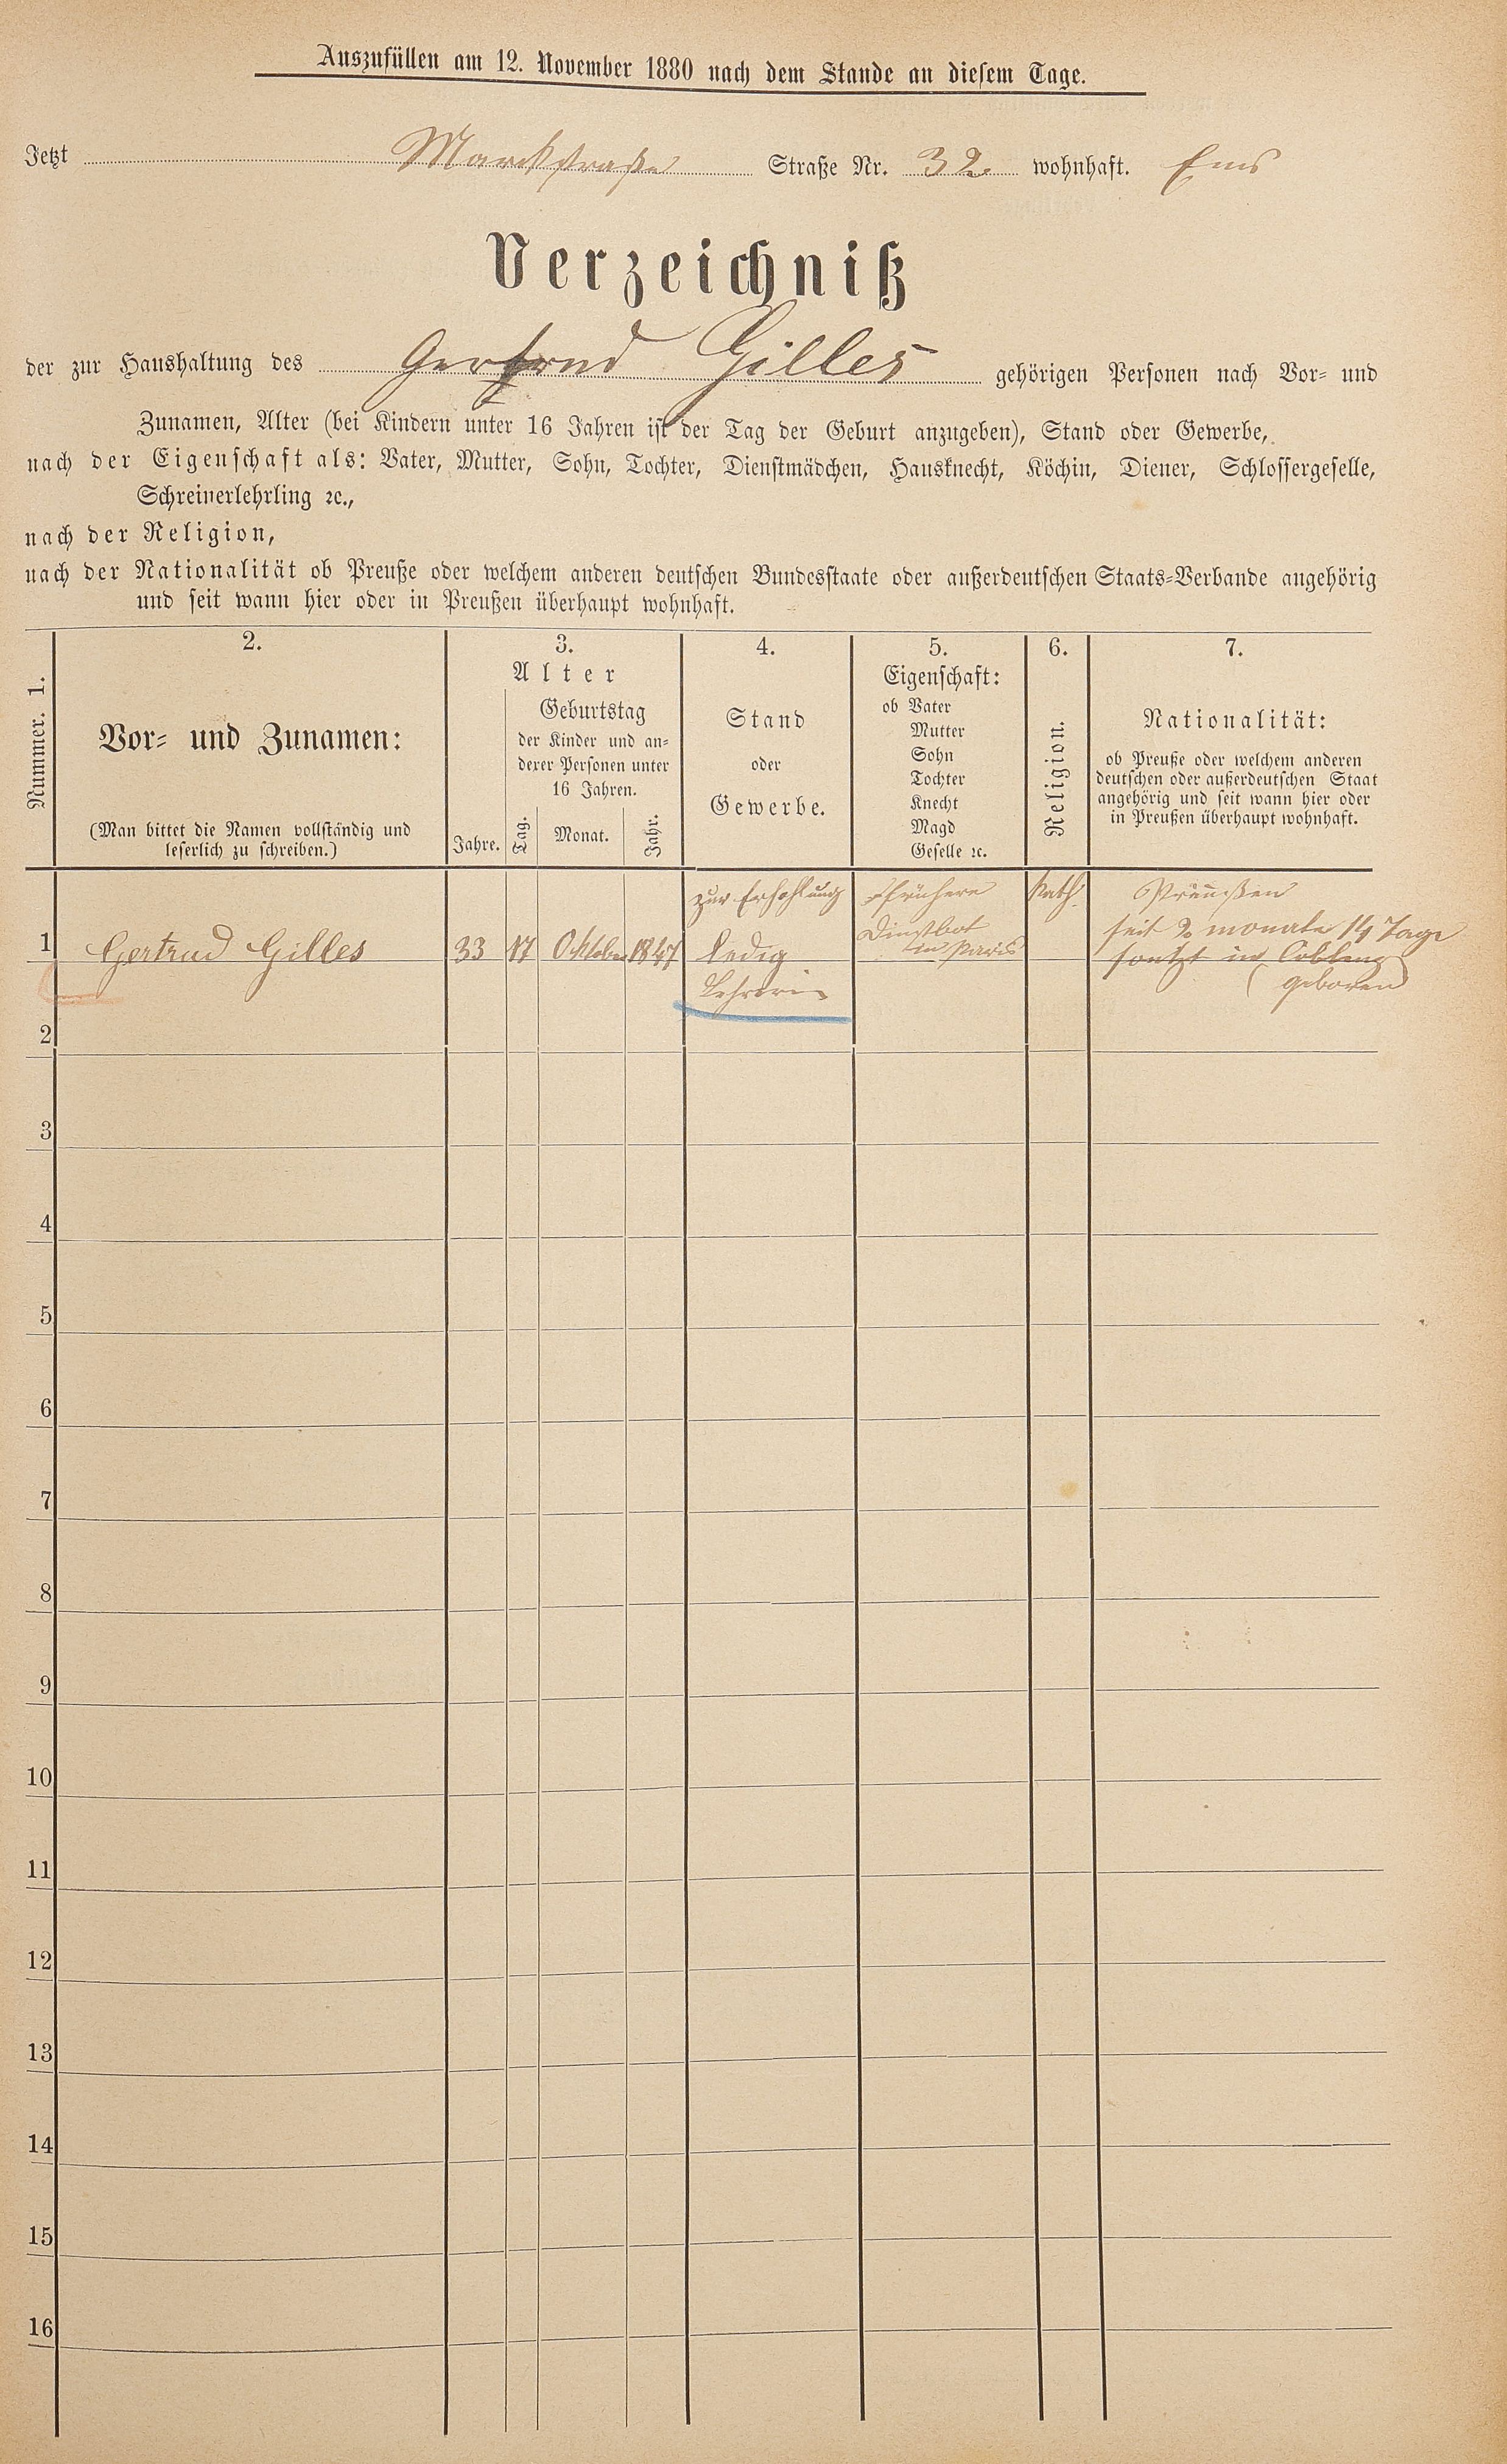 Auszufüllen am 12. November 1880 nach dem Stande an diesem Tage.
Jetzt Markstraße Straße Nr. 32 wohnhaft. Ems
Verzeichniß
der zur Haushaltung des Gertrud Gilles gehörigen Personen nach Vor- und
Zunamen, Alter (bei Kindern unter 16 Jahren ist der Tag der Geburt anzugeben), Stand oder Gewerbe,
nach der Eigenschaft als: Vater, Mutter, Sohn, Tochter, Dienstmädchen, Hausknecht, Köchin, Diener, Schlossergeselle,
Schreinerlehrling ꝛc.,
nach der Religion,
nach der Nationalität ob Preuße oder welchem anderen deutschen Bundesstaate oder außerdeutschen Staats-Verbande angehörig
und seit wann hier oder in Preußen überhaupt wohnhaft.
Nummer. 1.
2.
Vor- und Zunamen:
(Man bittet die Namen vollständig und
leserlich zu schreiben.)
3.
Alter
Geburtstag
der Kinder und an-
derer Personen unter
16 Jahren.
Jahre.
Tag.
Monat.
Jahr.
4.
Stand
oder
Gewerbe.
5.
Eigenschaft:
ob Vater
Mutter
Sohn
Tochter
Knecht
Magd
Geselle ꝛc.
6.
Religion.
7.
Nationalität:
ob Preuße oder welchem anderen
deutschen oder außerdeutschen Staat
angehörig und seit wann hier oder
in Preußen überhaupt wohnhaft.
1 Gertrud Gilles 33 17 Oktober 1847
zur Erhohlung
ledig
Lehrerin
frühere
Dinstbot
in Paris
Kath.
Preussen
seit 2 monate 14 Tage
sontst in Coblenz
(geboren)
2
3
4
5
6
7
8
9
10
11
12
13
14
15
16